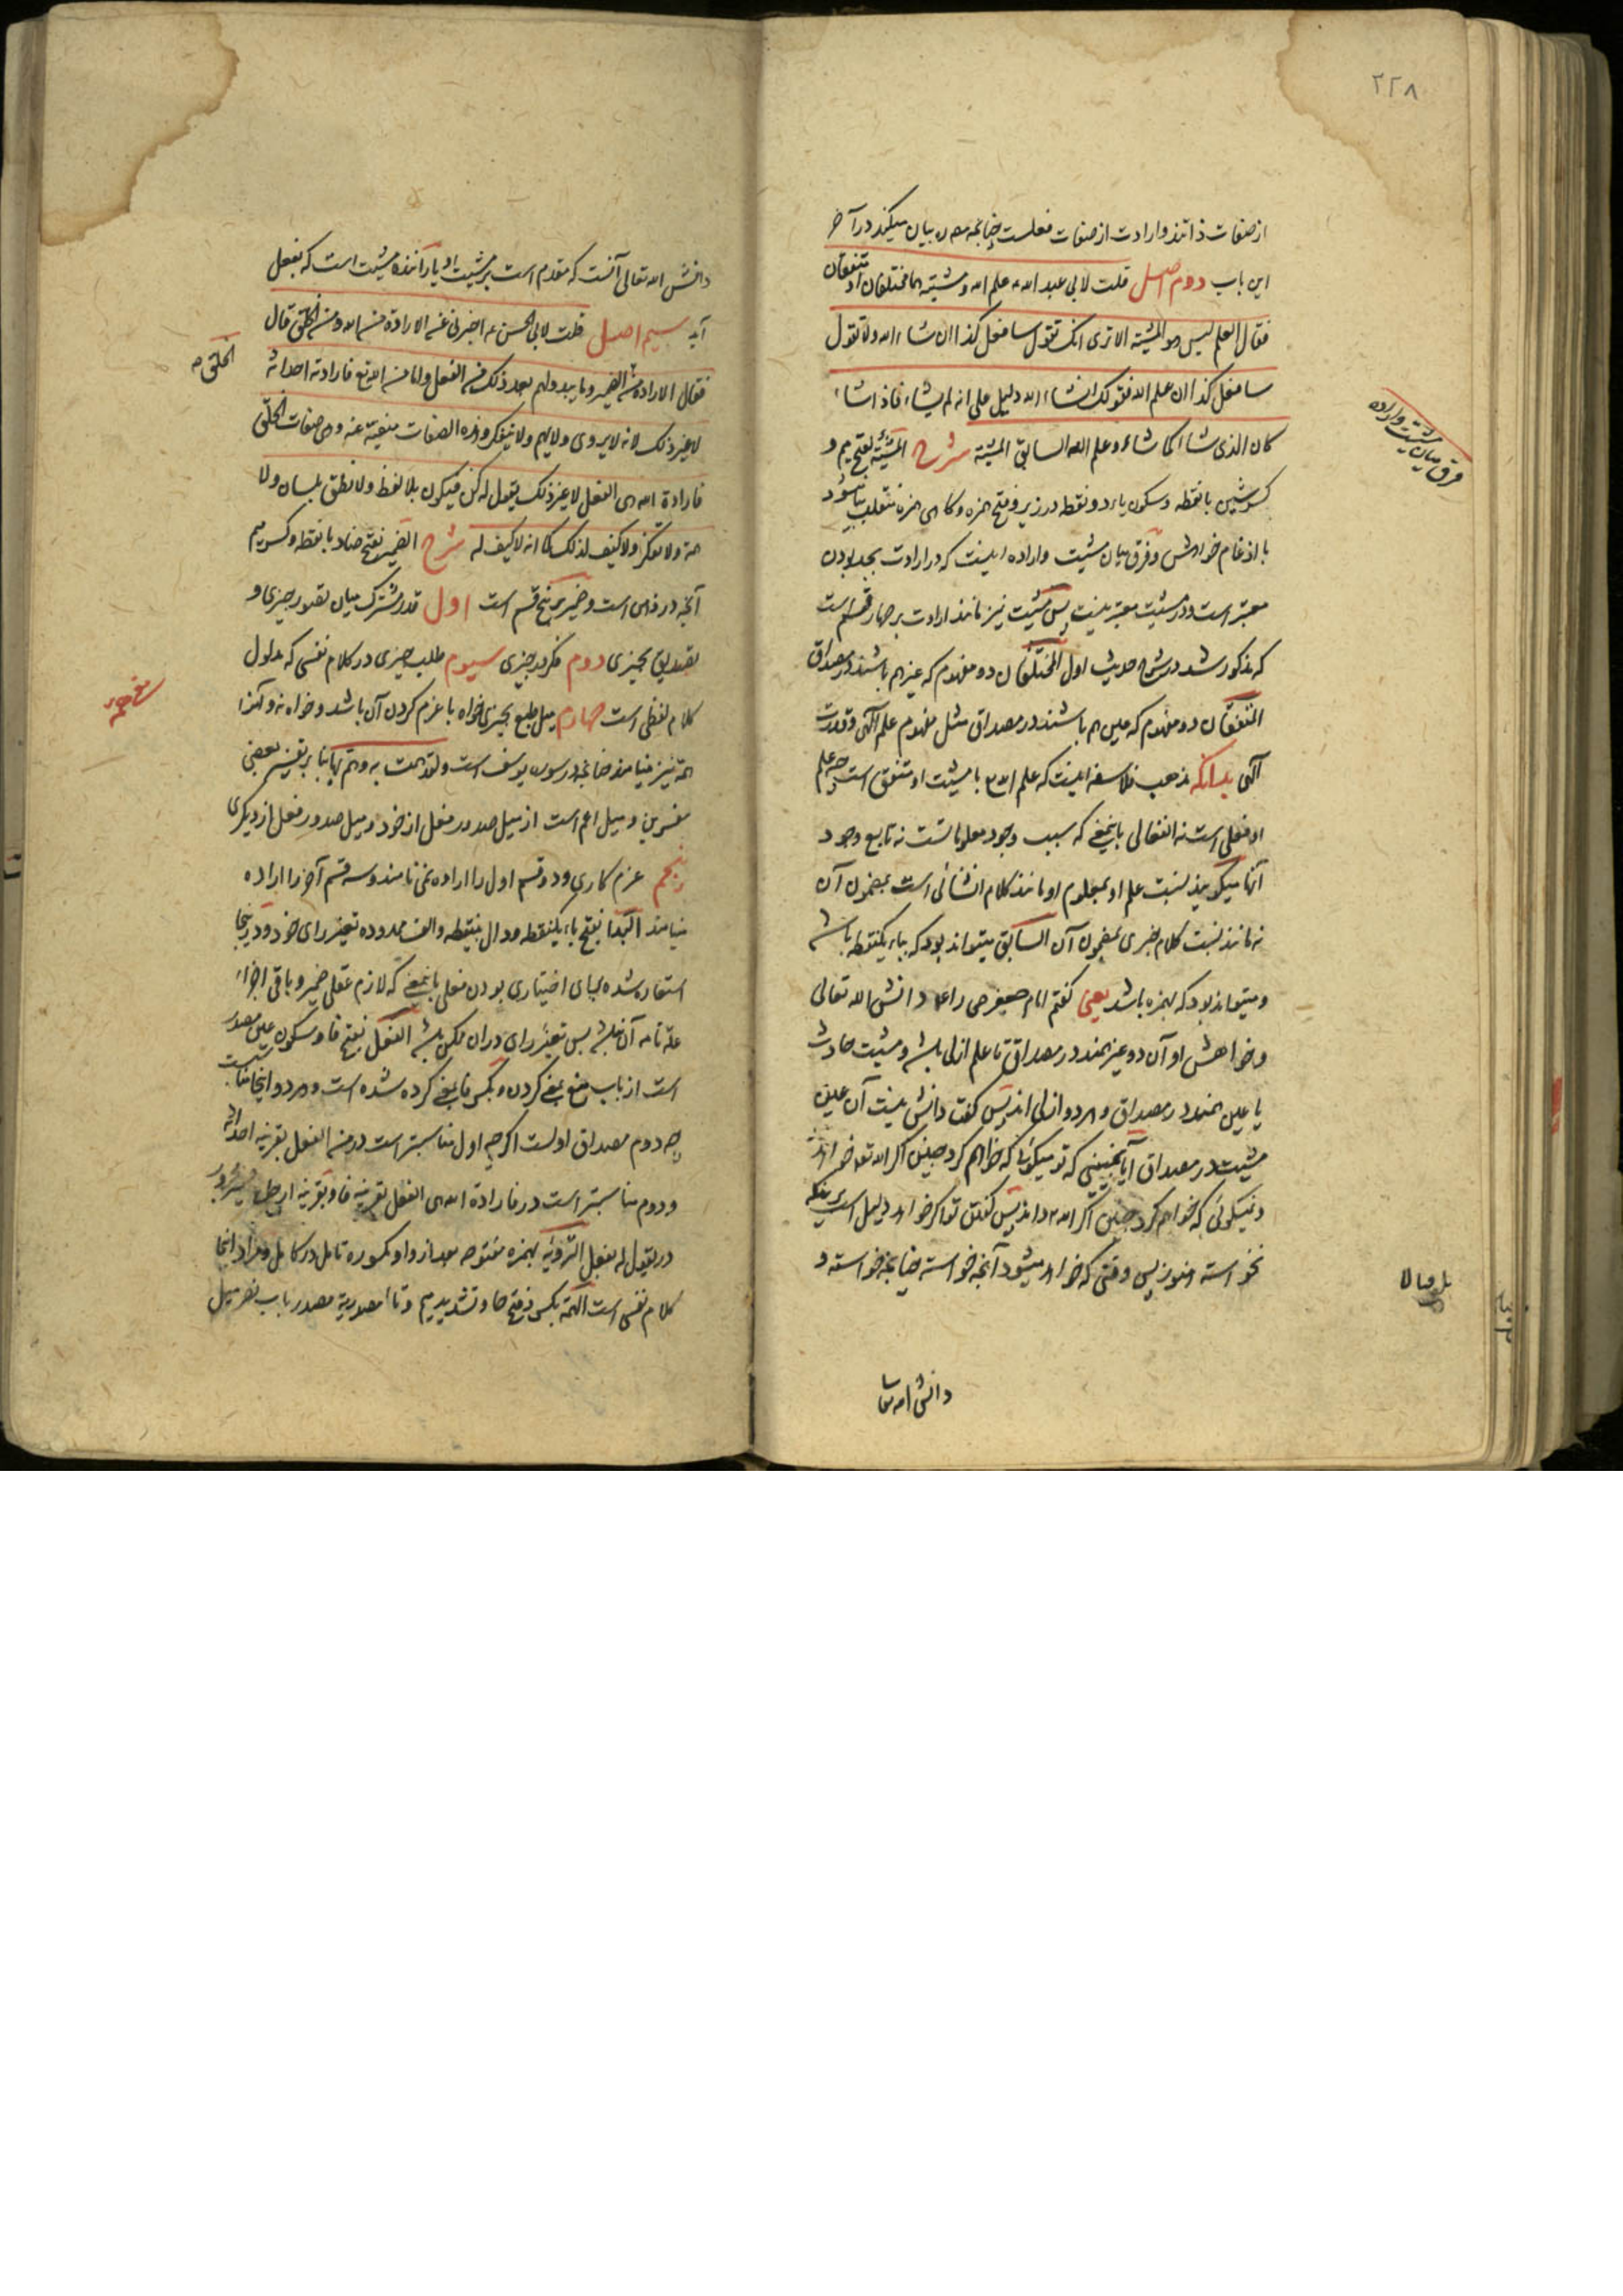 ۲۲۸
از صفات ذاتند و ارادت از صفات فعلست چنانچه مص ره بیان میکند در آخر
این باب دوم اصل قلت لابی عبد الله ع علم الله و مشیته هما مختلفان او متفقان
فقال العلم لیس هو المشیة الا تری انک تقول سافعل کذا ان شاء الله ولا تقول
سافعل کذا ان علم الله فقولک ان شاء الله دلیل علی انه لم یشاء فاذا شاء
کان الذی شاء کما شاء و علم الله السابق المشیة شرح المشیئة بفتح میم و
کسر شین با نقطه و سکون یاء دو نقطه در زیر و فتح همزه و کاهی همزه منقلب بیا میشود
با ادغام خواهش و فرق میان مشیت و اراده اینست که در ارادت بجد بودن
معتبر است و در مشیت معتبر نیست پس مشیت نیز مانند ارادت بر چهار قسم است
که مذکور شد در شرح حدیث اول المختلفان دو مفهوم که غیر هم باشند در مصداق
المتفقان دو مفهوم که عین هم باشند در مصداق مثل مفهوم علم الهی و قدرت
الهی بدانکه مذهب فلاسفه اینست که علم الله با مشیت او متفق است چه علم
او فعلی است نه انفعالی باینمعنی که سبب وجود معلوماتست نه تابع وجود
آنها میکویند نسبت علم او بمعلوم او مانند کلام انشائی است بمضمون آن
نه مانند نسبت کلام خبری بمضمون آن السابق میتواند بود که بباء یکنقطه باشد
و میتواند بود که بهمزه باشد یعنی گفتم امام جعفر ص را ع که دانش الله تعالی
و خواهش او آن دو غیر همند در مصداق تا علم ازلی باشد و مشیت حادث
یا عین همند در مصداق و هر دو ازلی اند پس گفت دانش نیست آن عین
مشیت در مصداق آیا نمیبینی که تو میگوئی که خواهم کرد چنین اگر الله تعالی خواهد
و نمیگوئی که خواهم کرد چنین اگر الله داند پس گفتن تو اگر خواهد دلیل است بر اینکه
نخواسته هنوز پس وقتی که خواهد میشود آنچه خواسته چنانچه خواسته و
دانش الله تعا
فرق میان مشیت و اراده
دانش الله تعالی آنست که مقدم است بر مشیت او یا راننده مشیت است که بفعل
آید سیم اصل قلت لابی الحسن ع اخبرنی عن الارادة من الله و من الخلق قال
فقال الارادة من الخلق الضمیر و ما یبدو لهم بعد ذلک من الفعل و اما من الله تع فارادته احداثه
لا غیر ذلک لانه لا یروی ولا یهم ولا یتفکر و هذه الصفات منفیة عنه و هی صفات الخلق
فارادة الله هی الفعل لا غیر ذلک یقول له کن فیکون بلا لفظ ولا نطق بلسان ولا
همة ولا تفکر ولا کیف لذلک کما انه لا کیف له شرح الضمیر بفتح ضاد با نقطه و کسر میم
آنچه در ذهن است و ضمیر بر پنج قسم است اول قدر مشترک میان تصور چیزی و
تصدیق بچیزی دوم فکر در چیزی سیوم طلب چیزی در کلام نفسی که مدلول
کلام لفظی است چهارم میل طبع بچیزی خواه با عزم کردن آن باشد و خواه نه و آنرا
همة نیز مینامند چنانچه در سوره یوسف است ولقد همت به و هم بها بنا بر تفسیر بعضی
مفسرین و میل اعم است از میل صدور فعل از خود و میل صدور فعل از دیگری
پنجم عزم کاری و دو قسم اول را اراده نمی نامند و سه قسم آخر را اراده
مینامند البداء بفتح باء یکنقطه و دال بینقطه و الف ممدوده تغیر رای خود و در اینجا
استعاره شده برای اختیاری بودن فعلی باینمعنی که لازم عقلی ضمیر و باقی اجزاء
علة تامه آن نباشد پس تغیر رای در آن ممکن باشد الفعل بفتح فا و سکون عین مصدر
است از باب منع بمعنی کردن و بکسر فا بمعنی کرده شده است و هر دو اینجا مناسبت
چه دوم مصداق اولست اگر چه اول مناسبتر است در من الفعل بقرینه احداثه
و دوم مناسبتر است در فارادة الله هی الفعل بقرینه فا و بقرینه
در یقول له بفعل الترویة بهمزه مفتوحه بعد از واو مکسوره تامل در کاری و مراد اینجا
کلام نفسی است الهمة بکسر و فتح ها و تشدید میم و تاء مصدریة مصدر باب نصر میل
الخلق ص